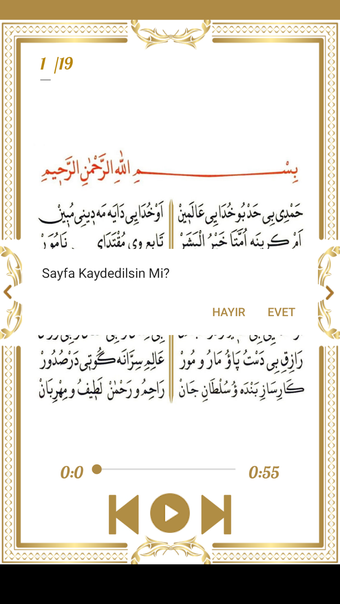 1 /19
بِسْمِ اللهِ الرَّحْمٰنِ الرَّحِيمِ
حَمْدِى بِى حَدْ بُو خُدَايِى عَالَمِينْ
أَوْ خُدَايِى دَايَه مَه دِينِى مُبِينْ
اَمْ كِرِينَه اُمَّتَا خَيْرُ الْبَشَرْ
تَابِعِ وِى مُقْتَدَاىِ نَامُوَرْ
Sayfa Kaydedilsin Mi?
HAYIR EVET
رَازِقِ بِى دَسْتُ پَاؤُ مَارُ و مُورْ
عَالِمِ سِرَّانَه گُوتِى دَرْ صُدُورْ
كَارسَازِ بَنْدَه وُ سُلْطَانِ جَانْ
رَاحِمُ و رَحْمٰنْ لَطِيفُ و مِهْرِبَانْ
0:0 0:55